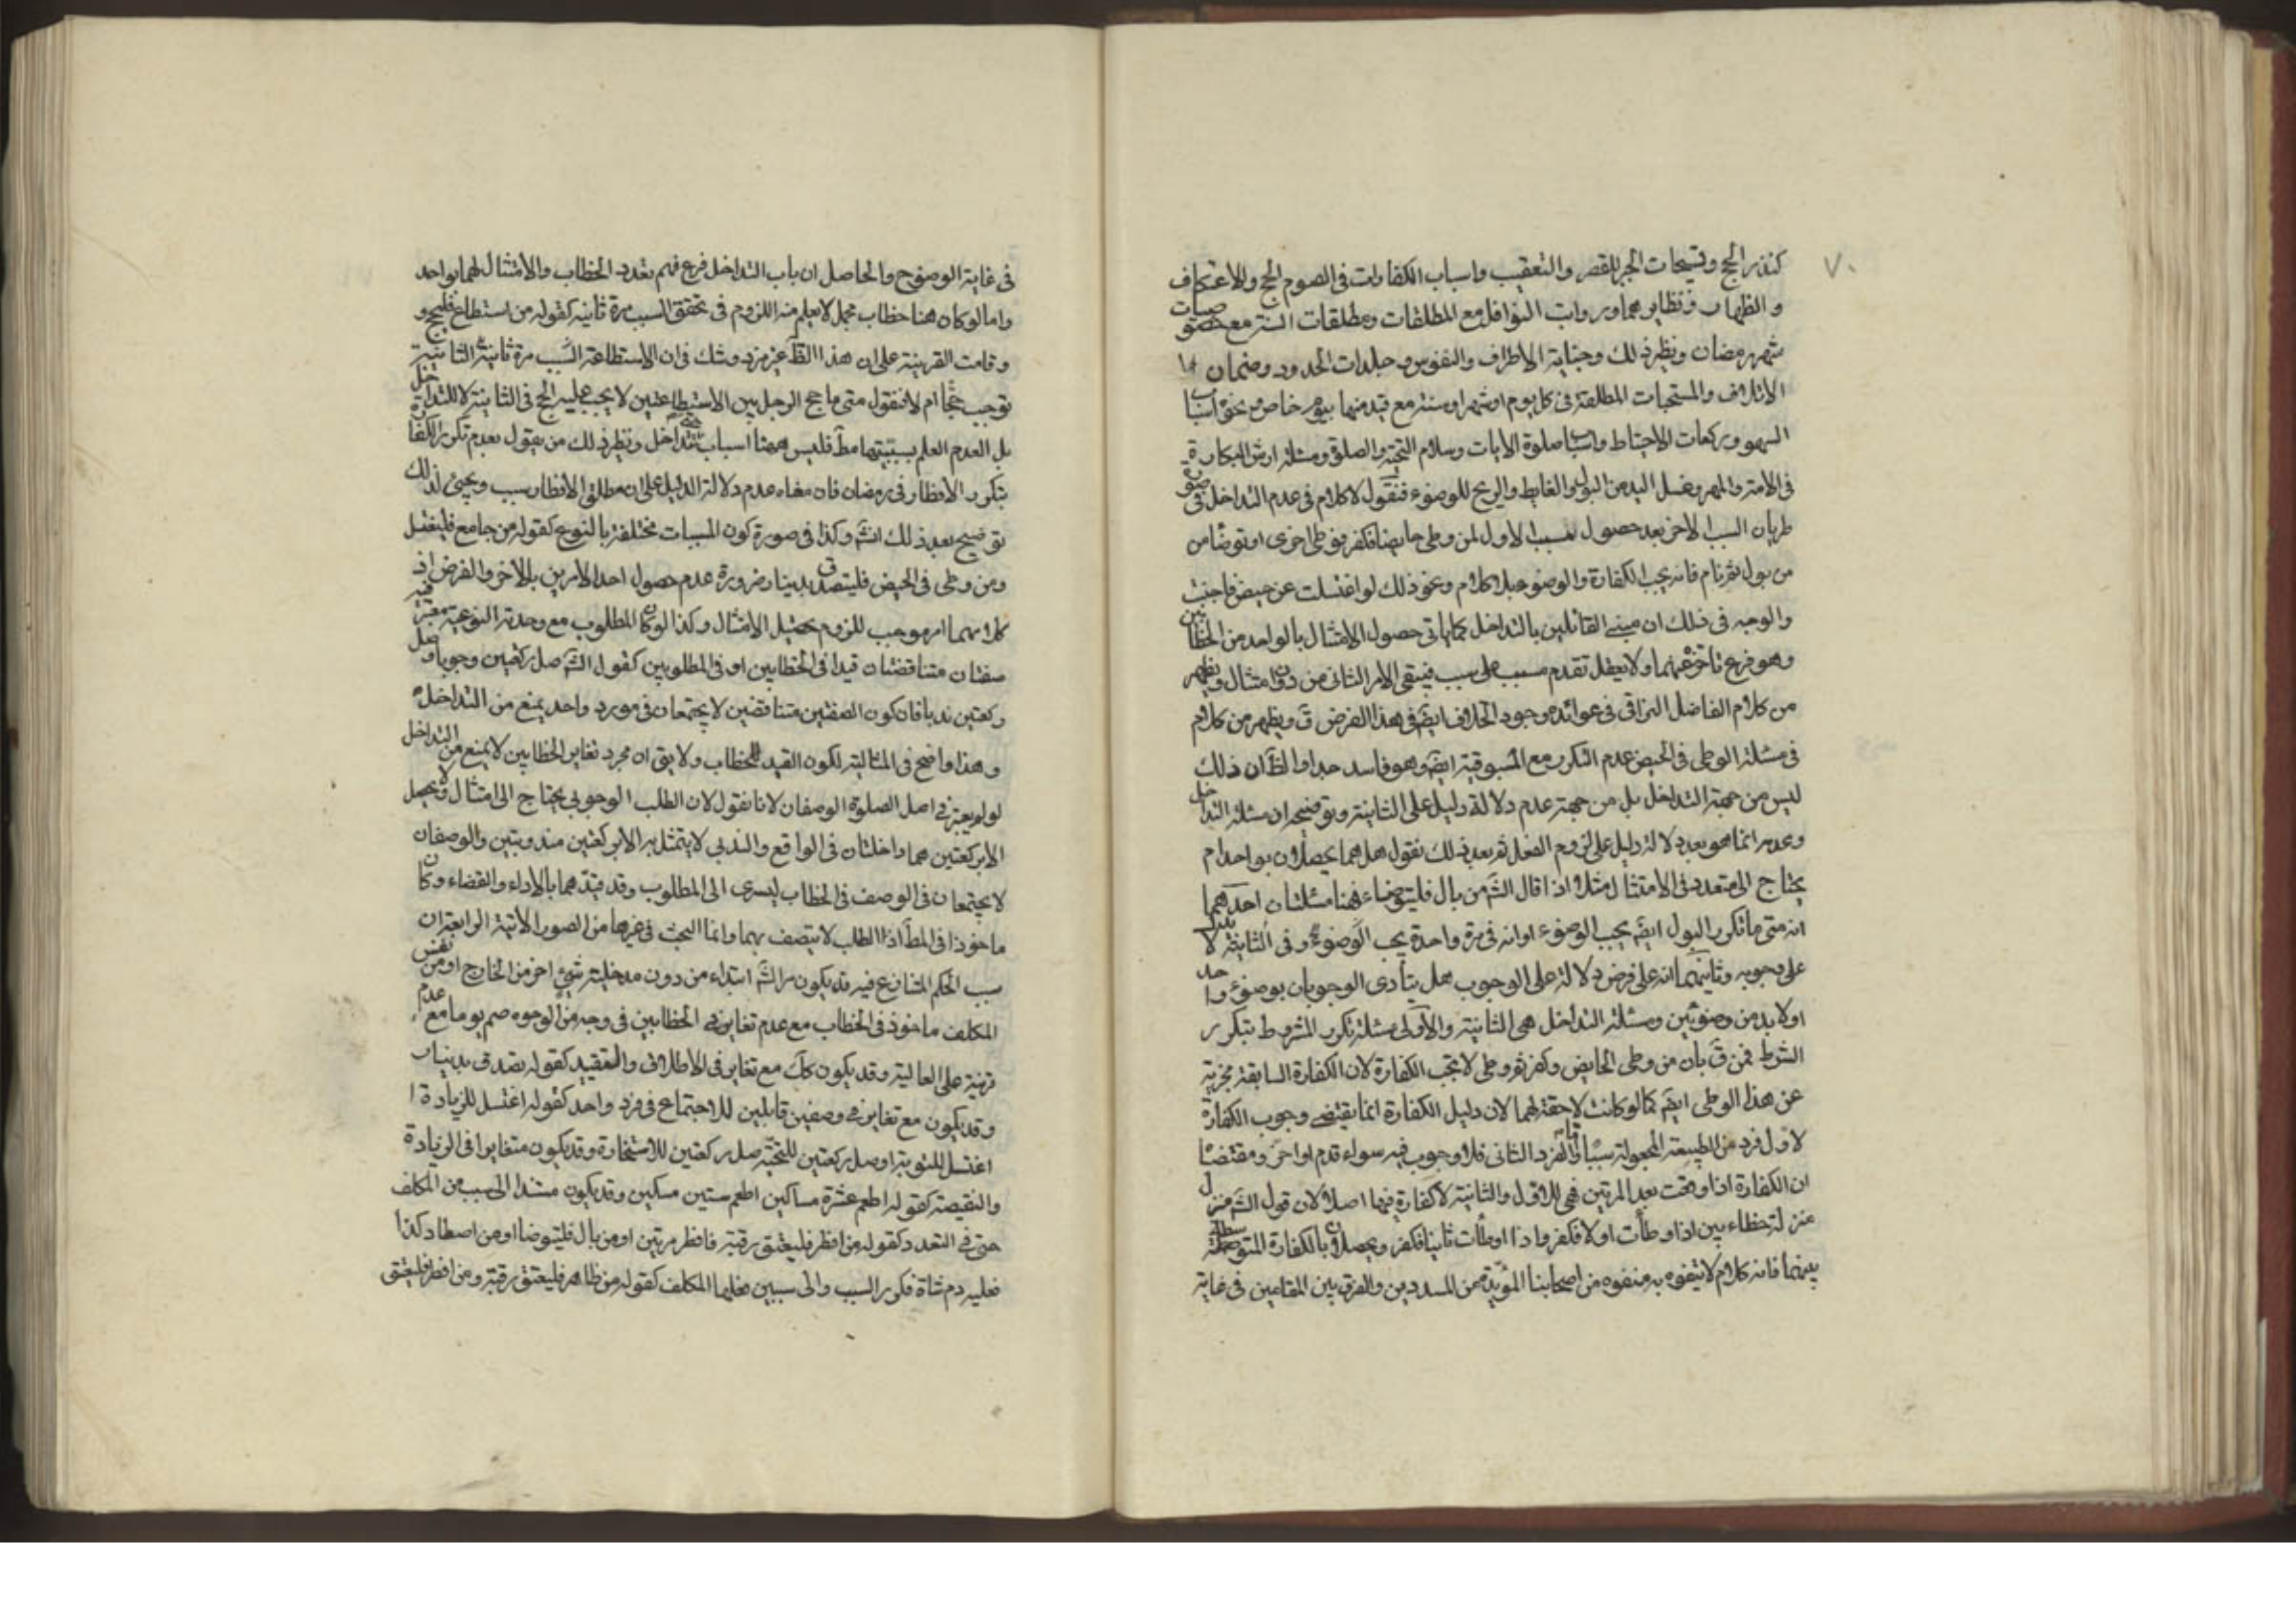 ٧٠
كنذر الحج وتسبيحات الجبر للقصر والتعقيب واسباب الكفارات في الصوم الحج والاعتكاف
و الظهار ونظايرهما ورواتب النوافل مع المطلقات ومطلقات السنر مع
شهر رمضان ونظير ذلك وجناية الاطراف والنفوس وجلدات الحدود وضمان
الاتلاف والمستحبات المطلقة في كل يوم او شهر او سنة مع قيد منهما بيوم خاص مع نحو اسباب
السهو وركعات الاحتياط واسباب صلوة الايات وسلام التحية والصلوة ومسئلة ارش البكارة
في الامة والمهر وغسل اليد من البول والغايط والريح للوضوء فنقول لا كلام في عدم التداخل في صورة
طريان السبب الاخر بعد حصول مسبب الاول لمن وطي حايضا فكفر فوطي اخرى او توضأ من
من بول ثم نام فانه يجب الكفارة والوضوء جبلا كلام ونحو ذلك لو اغتسلت عن حيض فاجنبت
والوجه في ذلك ان مبنى القائلين بالتداخل كما ياتي حصول الامتثال بالواحد من الخطابين
وهو فرع تاخره عنهما ولا يعقل تقدم مسبب على سبب فيبقى الامر الثاني من دون امتثال ويظهر
من كلام الفاضل النراقي في عوائده وجود الخلاف ايضَ في هذا الفرض قَ ويظهر من كلام
في مسئلة الوطي في الحيض عدم التكرر مع المسبوقية ايضَ وهو فاسد جدا والظَ ان ذلك
ليس من جهة التداخل بل من جهة عدم دلالة دليل على الثانية وتوضيحه ان مسئلة التداخل
وعدمه انما هو بعد دلالة دليل على لزوم الفعل ثم بعد ذلك نقول هل هما يحصلان بواحد ام
يحتاج الى متعدد في الامتثال مثلا اذا قال الشَ من بال فليتوضاء فهنا مسئلتان احدهما
انه متى ما تكرر البول ايضَ يجب الوضوء او انه في مرة واحدة يجب الوضوء وفي الثانية لا يدل
على وجوبه وثانيهما انه على فرض دلالة على الوجوب هل يتأدى الوجوبان بوضوء واحد
او لا بد من وضوئين ومسئلة التداخل هي الثانية والاولى مسئلة تكرر المشروط بتكرر
الشرط فمن قَ بان من وطي الحايض وكفر ثم وطي لا تجب الكفارة لان الكفارة السابقة مجزية
عن هذا الوطي ايضَ كما لو كانت لاحقة لهما لان دليل الكفارة انما يقتضي وجوب الكفارة
لاول فرد من الطبيعة المجعولة سببا واما الفرد الثاني فلا وجوب فيه سواء قدم او اخر ومقتضيا
ان الكفارة اذا وقعت بعد المرتين فهي للاول والثانية لا كفارة فيها اصلا لان قول الشَ منزل
منزلة خطاءبين اذا وطأت اولا فكفر واذا اوطأت ثانيا فكفر ويحصلان بالكفارة المتوسطة
بينهما فانه كلام لا يتفوه به متفوه من اصحابنا المؤيدة من المسددين والفرق بين المقامين في غاية
في غاية الوضوح والحاصل ان باب التداخل فرع فهم تعدد الخطاب والامتثال لهما بواحد
واما لو كان هنا خطاب مجمل لا يعلم منه اللزوم في تحقق السبب مرة ثانية كقوله من استطاع فليحج و
وقامت القرينة على ان هذا الظَ غير مزيد وشك في ان الاستطاعة السبب مرة ثانية الثانية
توجب حجا ام لا فنقول متى ما حج الرجل بين الاستطاعتين لا يجب عليه الحج في الثانية لا للتداخل
بل لعدم العلم بسببيتهما مطَ فليس ههنا اسباب حتى تتداخل ونظير ذلك من يقول بعدم تكرر الكفارة
بتكرر الافطار في رمضان فان مغاه عدم دلالة الدليل على ان مطلق الافطار سبب ويجئ لذلك
توضيح بعد ذلك انشَ وكذا في صورة كون المسببات مختلفة بالنوع كقوله من جامع فليغتسل
ومن وطى في الحيض فليتصدق بدينار ضرورة عدم حصول احد الامرين بالاخر والفرض اذ
كلا منهما امر موجب للزوم تحصيل الامتثال وكذا لو كان المطلوب مع وحدته النوعية معتبرة فيه
صفتان متناقضتان قيدا في الخطابين او في المطلوبين كقول الشَ صل ركعتين وجوبا وصل
ركعتين ندبا فان كون الصفتين متناقضين لا يجتمعان في مورد واحد يمنع من التداخل
وهذا واضح في المثالية لكون القيد للخطاب ولا يقَ ان مجرد تغاير الخطابين لا يمنع من التداخل
لو لم يعتبر في اصل الصلوة الوصفان لانا نقول لان الطلب الوجوبي يحتاج الى امتثال ولا يحصل
الا بركعتين هما داخلتان في الواقع والندبي لا يتمثل به الا بركعتين مندوبتين والوصفان
لا يجتمعان في الوصف في الخطاب ليسرى الى المطلوب وقد قيدهما بالاداء والقضاء وكان
ماخوذا في المطَ اذ الطلب لا يتصف بهما وانما البحث في غيرها من الصور الاتية الرابعة ان
سبب الحكم المتنازع فيه قد يكون من الشَ ابتداء من دون مدخلية شئ اخر من الخارج او من نفس
المكلف ماخوذ في الخطاب مع عدم تغاير في الخطابين في وجه من الوجوه صم يوما مع عدم
قرينة على العالية وقد يكون كلَ مع تغاير في الاطلاق والتقييد كقوله تصدق بدينار
وقد يكون مع تغاير في وصفين قابلين للاجتماع في فرد واحد كقوله اغتسل للزيادة ا
اغتسل للتوبة او صل ركعتين للتحية صل ركعتين للاستخارة وقد يكون متغايرا في الزيادة
والنقيصة كقوله اطعم عشرة مساكين اطعم ستين مسكين وقد يكون مستندا الى سبب من المكلف
حتى في التعدد كقوله من افطر فليعتق رقبة فافطر مرتين او من بال فليتوضا او من اصطاد كذا
فعليه دم شاة فكرر السبب والى سببين فعلهما المكلف كقوله من ظاهر فليعتق رقبة ومن افطر فليعتق